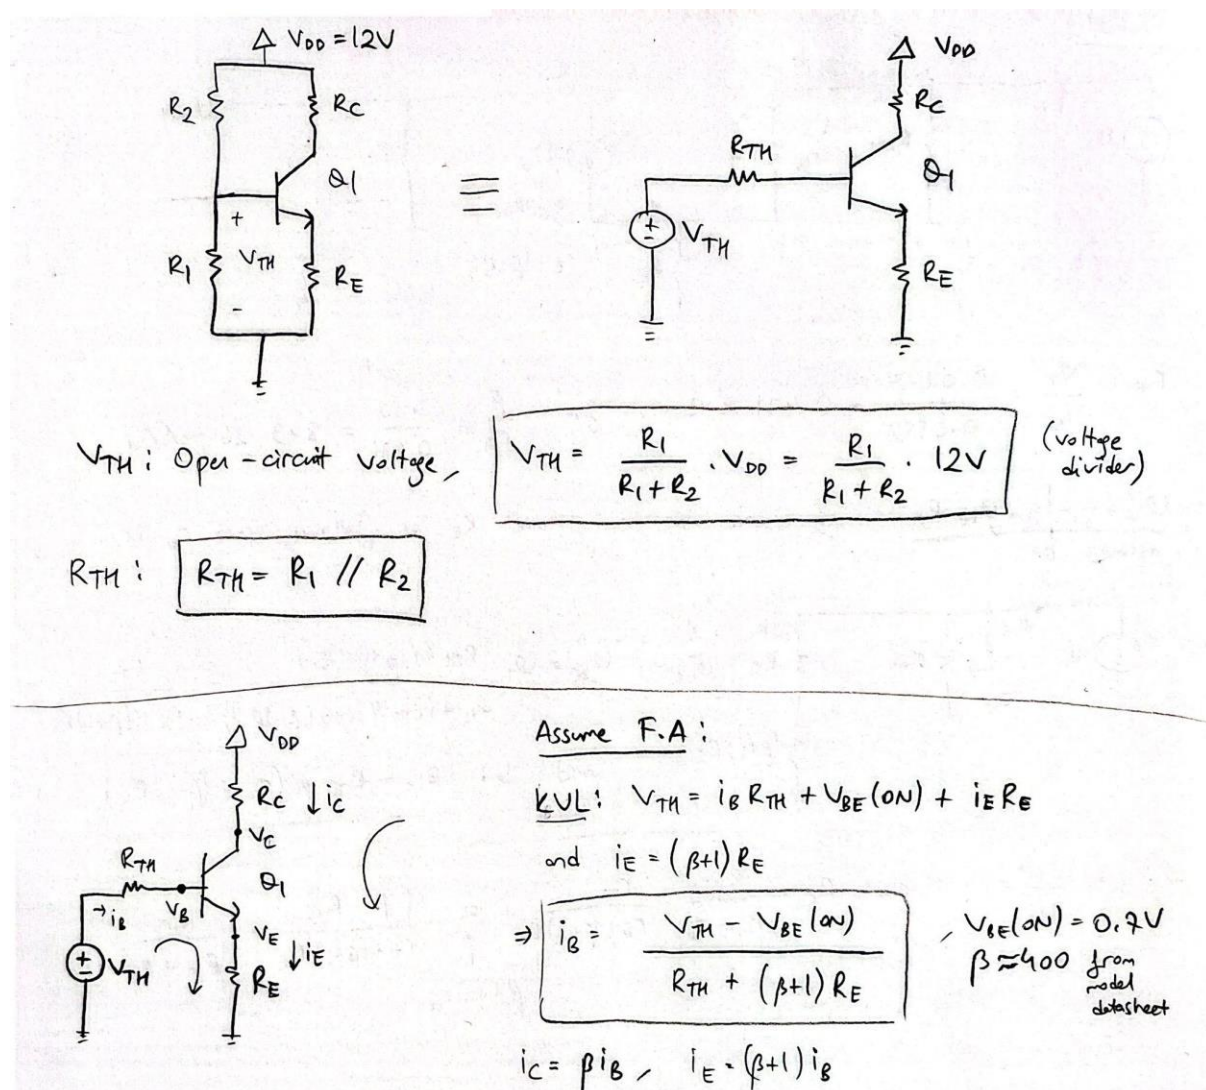 V_DD = 12V
R_2
R_C
Q1
+
R_1
V_TH
R_E
-
≡
V_DD
R_C
R_TH
Q1
+
-
V_TH
R_E
V_TH : Open-circuit voltage, V_TH = R_1 / (R_1 + R_2) . V_DD = R_1 / (R_1 + R_2) . 12V (voltage divider)
R_TH : R_TH = R_1 // R_2
V_DD
R_C ↓i_C
V_C
R_TH
Q1
→ i_B
V_B
V_E
↓i_E
+
-
V_TH
R_E
Assume F.A :
KVL: V_TH = i_B R_TH + V_BE(ON) + i_E R_E
and i_E = (β+1) R_E
⇒ i_B = (V_TH - V_BE(ON)) / (R_TH + (β+1) R_E) , V_BE(ON) = 0.7V
β ≈ 400 from
model
datasheet
i_C = β i_B , i_E = (β+1) i_B